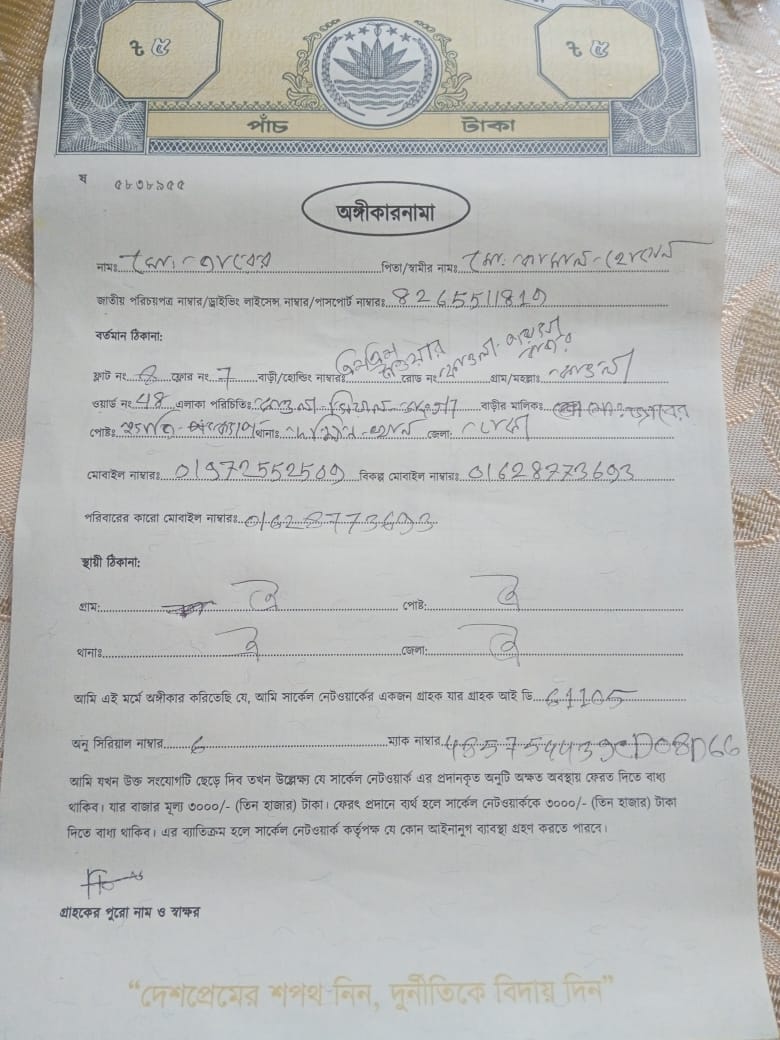 ৳ ৫ ৳ ৫
পাঁচ টাকা
ষ ৫৮৩৮৯৫৫
অঙ্গীকারনামা
নামঃ মো: পিতা/স্বামীর নামঃ মো: কামাল হোসেন
জাতীয় পরিচয়পত্র নাম্বার/ড্রাইভিং লাইসেন্স নাম্বার/পাসপোর্ট নাম্বারঃ 8265511819
বর্তমান ঠিকানা:
ফ্লাট নং 8 ফ্লোর নং 7 বাড়ী/হোল্ডিং নাম্বারঃ রোড নং গ্রাম/মহল্লাঃ কাওলা
ওয়ার্ড নং 48 এলাকা পরিচিতিঃ কাওলা বাড়ীর মালিকঃ
পোষ্টঃ থানাঃ দক্ষিন খান জেলা: ঢাকা
মোবাইল নাম্বারঃ 01972552509 বিকল্প মোবাইল নাম্বারঃ 01628773693
পরিবারের কারো মোবাইল নাম্বারঃ 01628773693
স্থায়ী ঠিকানা:
গ্রাম: ঐ পোষ্ট: ঐ
থানাঃ ঐ জেলা: ঐ
আমি এই মর্মে অঙ্গীকার করিতেছি যে, আমি সার্কেল নেটওয়ার্কের একজন গ্রাহক যার গ্রাহক আই ডি 61105
অনু সিরিয়াল নাম্বার 6 ম্যাক নাম্বার
আমি যখন উক্ত সংযোগটি ছেড়ে দিব তখন উল্লেখ্য যে সার্কেল নেটওয়ার্ক এর প্রদানকৃত অনুটি অক্ষত অবস্থায় ফেরত দিতে বাধ্য
থাকিব। যার বাজার মূল্য ৩০০০/- (তিন হাজার) টাকা। ফেরৎ প্রদানে ব্যর্থ হলে সার্কেল নেটওয়ার্ককে ৩০০০/- (তিন হাজার) টাকা
দিতে বাধ্য থাকিব। এর ব্যতিক্রম হলে সার্কেল নেটওয়ার্ক কর্তৃপক্ষ যে কোন আইনানুগ ব্যবস্থা গ্রহণ করতে পারবে।
গ্রাহকের পুরো নাম ও স্বাক্ষর
“দেশপ্রেমের শপথ নিন, দুর্নীতিকে বিদায় দিন”